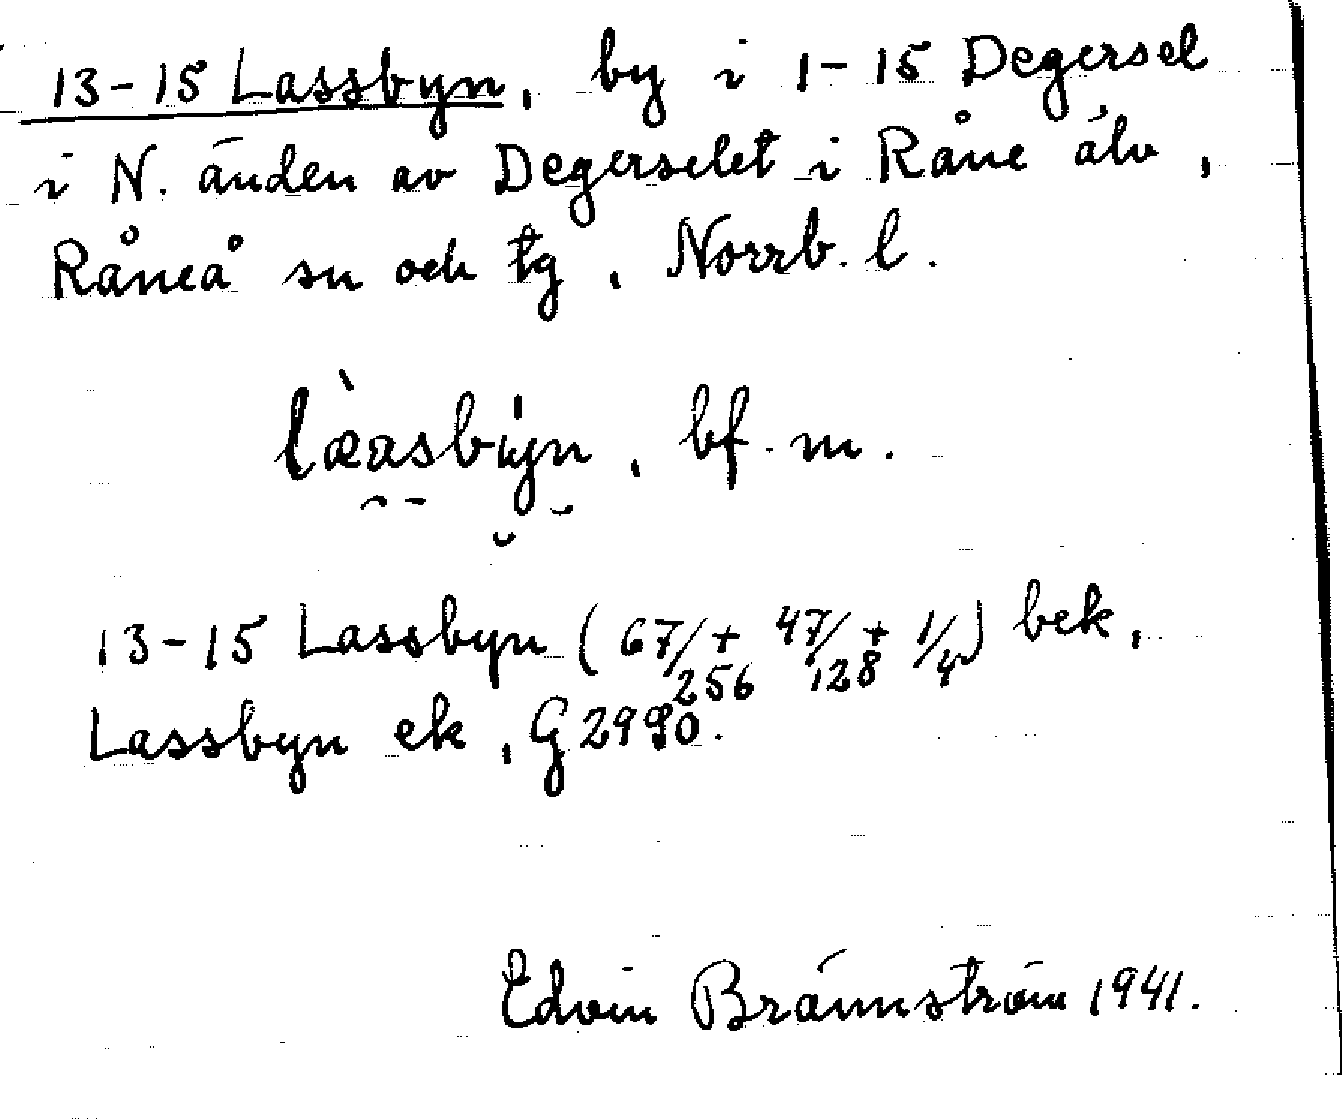 13-15 Lassbyn, by i 1-15 Degersel
i N. änden av Degerselet i Råne älv,
Råneå sn och tg, Norrb. l.
læ̀asbyn, bf. m.
13-15 Lassbyn (67/256 + 47/128 + 1/4) bek,
Lassbyn ek, G 2990.
Edvin Brännström 1941.